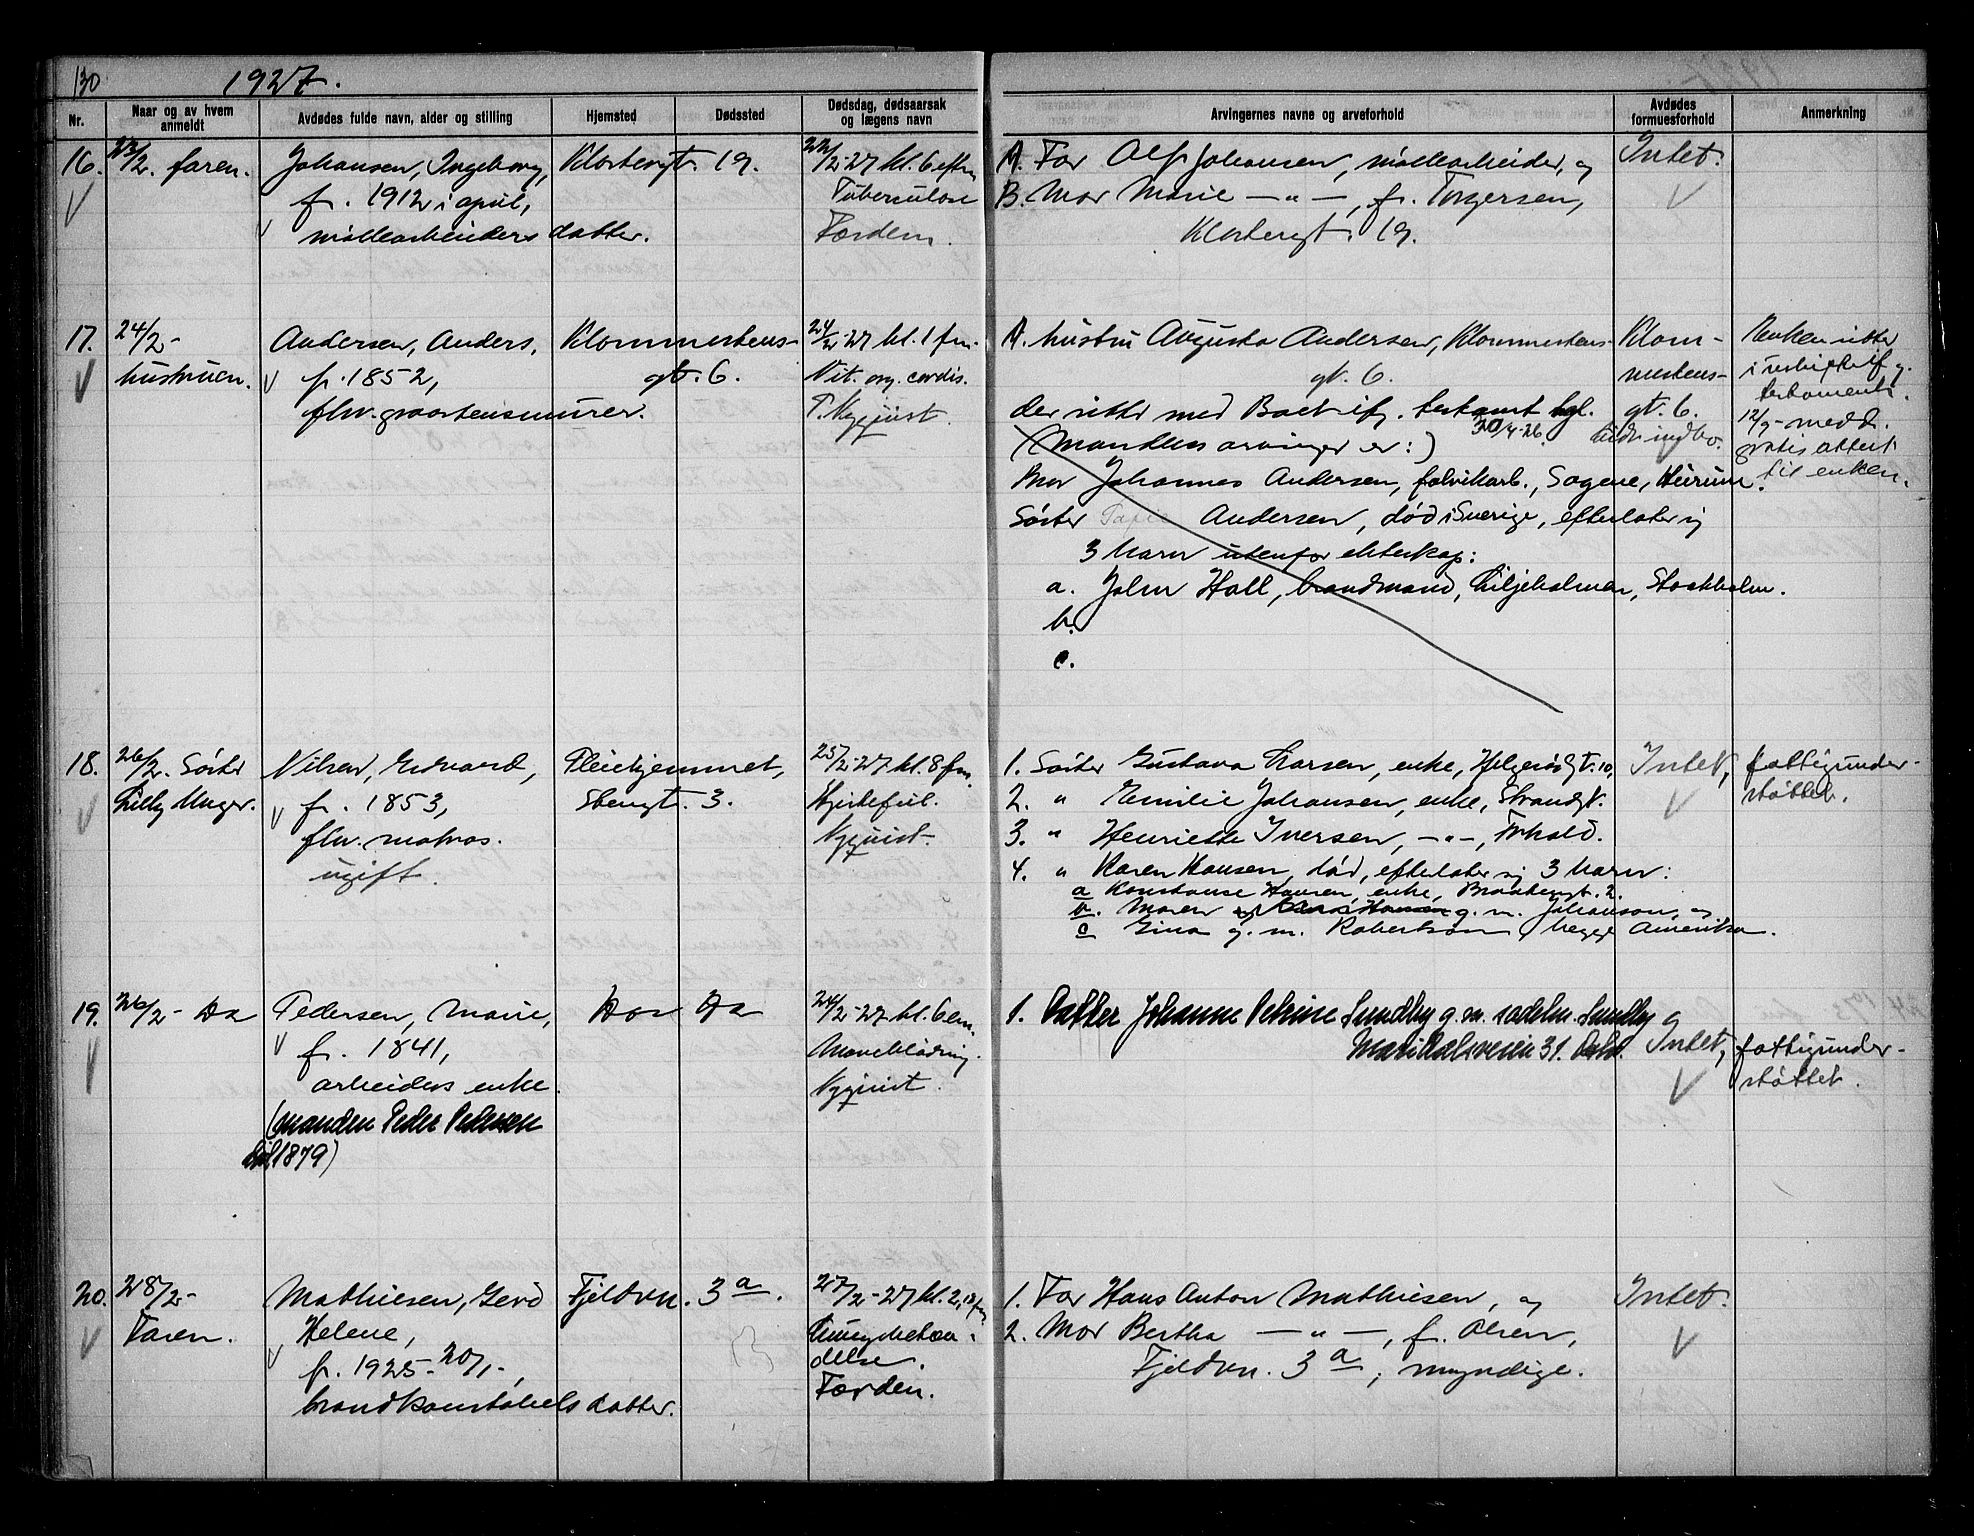 130
1927.
Nr.
Naar og av hvem anmeldt
Avdødes fulde navn, alder og stilling
Hjemsted
Dødssted
Dødsdag, dødsaarsak og lægens navn
Arvingernes navne og arveforhold
Avdødes formuesforhold
Anmerkning
16.
23/2. faren.
Johansen, Ingeborg,
f. 1912 i april,
møllearbeiders datter.
Klostergt. 19.
22/2-27 kl. 6 eftm
Tuberculose
Førden.
A. Far Alf Johansen, møllearbeider, og
B. Mor Marie — " —, f. Torgersen,
Klostergt. 19.
Intet.
17.
24/2-
hustruen.
Andersen, Anders,
f. 1852,
fhv. graastensmurer.
Klommestens-
gt. 6.
24/2-27 kl. 1 fm.
Vit. org. cordis.
T. Nyquist.
A. hustru Augusta Andersen, Klommestens-
gt. 6.
der sitter med Boet ifg. testamt kgl.
30/4-26.
(Mandens arvinger er:)
Bror Johannes Andersen, fabrikarb., Sagene, Hurum.
Søster Andersen, død i Sverige, efterlater sig
3 barn utenfor ekteskap:
a. John Hall, brandmand, Liljeholmen, Stockholm.
b.
c.
Klom-
mestens-
gt. 6.
indbo.
Enken sitter
i uskifte if g.
testament.
12/9- medd.
gratis attest
til enken.
18.
26/2. Søster
Lilly Unger.
Nilsen, Edvard,
f. 1853,
fhv. matros.
ugift.
Pleiehjemmet,
Stengt. 3.
25/2-27 kl. 8 fm.
Hjertefeil.
Nyquist.
1. Søster Gustava Larsen, enke, Helgerødgt. 10,
2. " Emilie Johansen, enke, Strandgt.
3. " Henriette Iversen, — " —, Torhold.
4. " Karen Hansen, død, efterlater sig 3 barn:
a Konstanse Hansen, enke, Braatengt. 2.
b. Maren g. m. Johanson, og
c Gina g. m. Robertson, begge Amerika.
Intet,
fattigunder-
støttet.
19.
26/2- Da
Pedersen, Marie,
f. 1841,
arbeiders enke.
(manden Peder Pedersen
død 1879)
Do Do
24/2-27 kl. 6 em.
Maveblødning.
Nyquist.
1. Datter Johanne Petrine Sundby g. m. sadelm. Sundby
Maridalsveien 31. Oslo.
Intet,
fattigunder-
støttet.
20.
28/2-
Faren.
Mathiesen, Gerd
Helene,
f. 1925- 20/1-,
brandkonstabels datter.
Fjeldvn. 3 a.
27/2-27 kl. 2,10 fm
Lungebetæn-
delse.
Førden.
1. Far Hans Anton Mathiesen, og
2. Mor Bertha — " —, f. Olsen,
Fjeldvn. 3 a; myndige.
Intet.